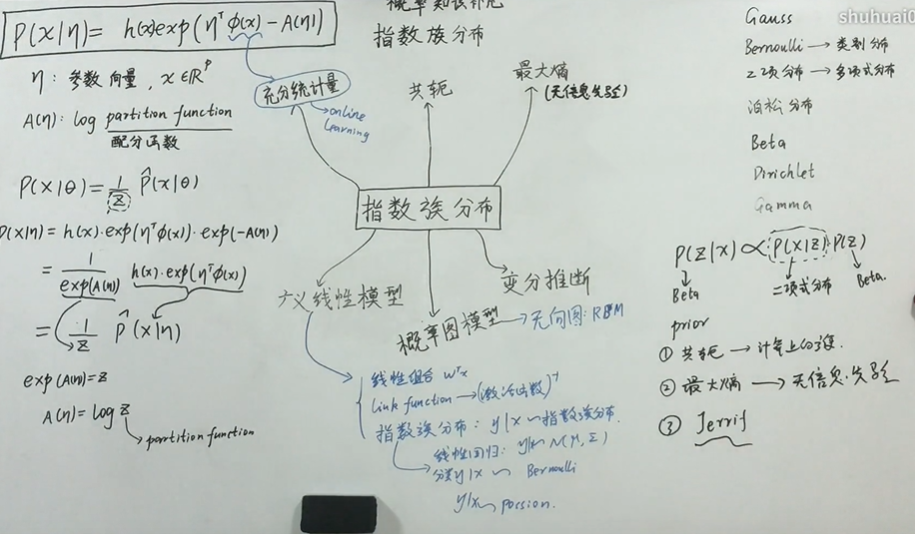 概率知识补充
指数族分布
P(x|η) = h(x) exp(η^T φ(x) - A(η))
η: 参数向量, x∈ℝ^p
A(η): log partition function
配分函数
P(x|θ) = 1/Z P̂(x|θ)
P(x|η) = h(x)·exp(η^T φ(x))·exp(-A(η))
= 1/exp(A(η)) h(x)·exp(η^T φ(x))
= 1/Z P̂(x|η)
exp(A(η)) = Z
A(η) = log Z
partition function
充分统计量
online
learning
共轭
最大熵
(无信息先验)
指数族分布
广义线性模型
概率图模型 → 无向图: RBM
变分推断
线性组合 w^T x
link function → (激活函数)^-1
指数族分布: y|x ~ 指数族分布.
线性回归: y|x ~ N(μ, Σ)
分类 y|x ~ Bernoulli
y|x ~ possion.
shuhuai0
Gauss
Bernoulli → 类别分布
二项分布 → 多项式分布
泊松分布
Beta
Dirichlet
Gamma
P(z|x) ∝ P(x|z)·P(z)
Beta
二项式分布
Beta.
prior
① 共轭 → 计算上的方便.
② 最大熵 → 无信息先验
③ Jerrif